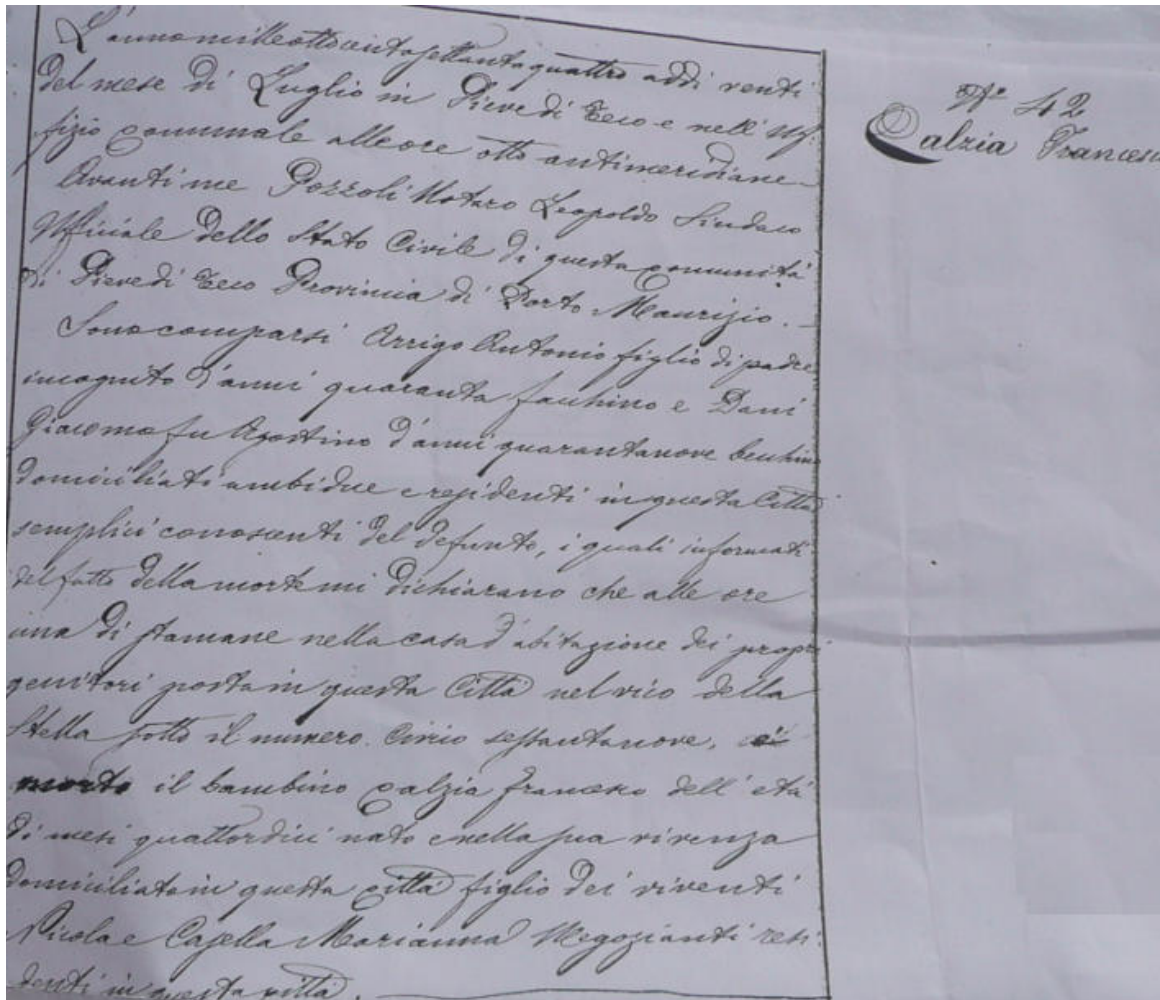 L'anno milleottocentosettantaquattro addi venti
del mese di Luglio in Pieve di Teco e nell'Uf.
fizio comunale alle ore otto antimeridiane
Avanti me Pozzoli Notaro Leopoldo Sindaco
Ufficiale dello Stato Civile di questa comunità
di Pieve di Teco Provincia di Porto Maurizio.
Sono comparsi Arrigo Antonio figlio di padre
incognito d'anni quaranta facchino e Dani
Giacomo fu Agostino d'anni quarantanove becchino
domiciliati ambidue e residenti in questa Città
semplici conoscenti del defunto, i quali informati
del fatto della morte mi dichiarano che alle ore
una di stamane nella casa d'abitazione dei propri
genitori posta in questa Città nel vico della
Stella sotto il numero civico sessantanove, è
morto il bambino Calzia Francesco dell'età
di mesi quattordici nato e nella sua vivenza
domiciliato in questa città figlio dei viventi
Nicola e Casella Marianna Negozianti resi.
denti in questa città.
Nº 42
Calzia Francesco